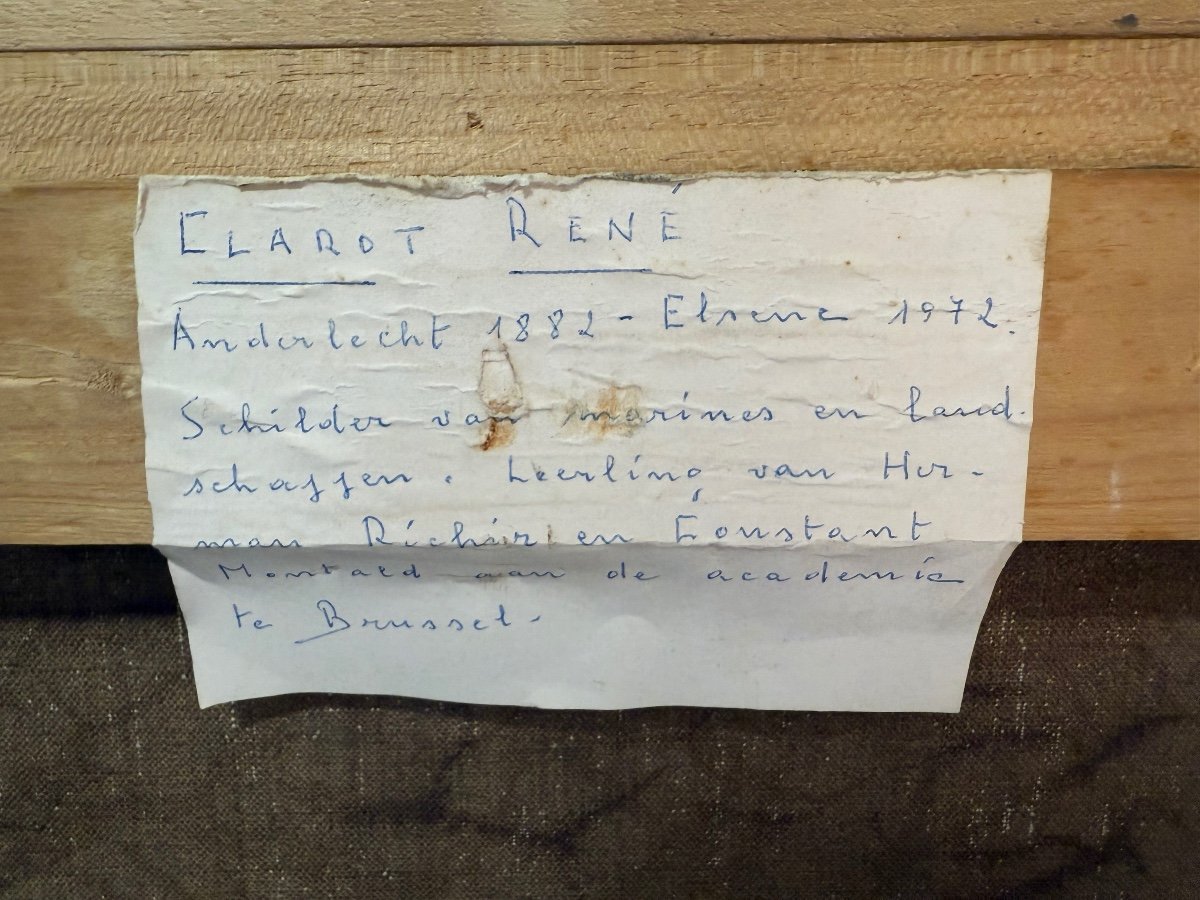 CLAROT RENÉ
Anderlecht 1882 - Elsene 1972.
Schilder van marines en land-
schappen. Leerling van Her-
man Richir en Constant
Montald aan de academie
te Brussel.